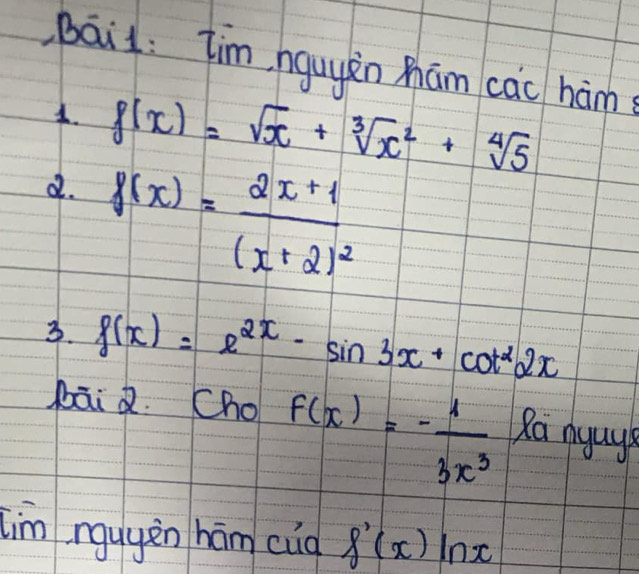 Bài 1: Tìm nguyên hàm các hàm s
1. f(x) = √x + ∛x² + ∜5
2. f(x) = (2x+1)/(x+2)²
3. f(x) = e^(2x) - sin 3x + cot² 2x
Bài 2. Cho F(x) = -1/(3x³) là nguyê
Tìm nguyên hàm của f'(x) lnx